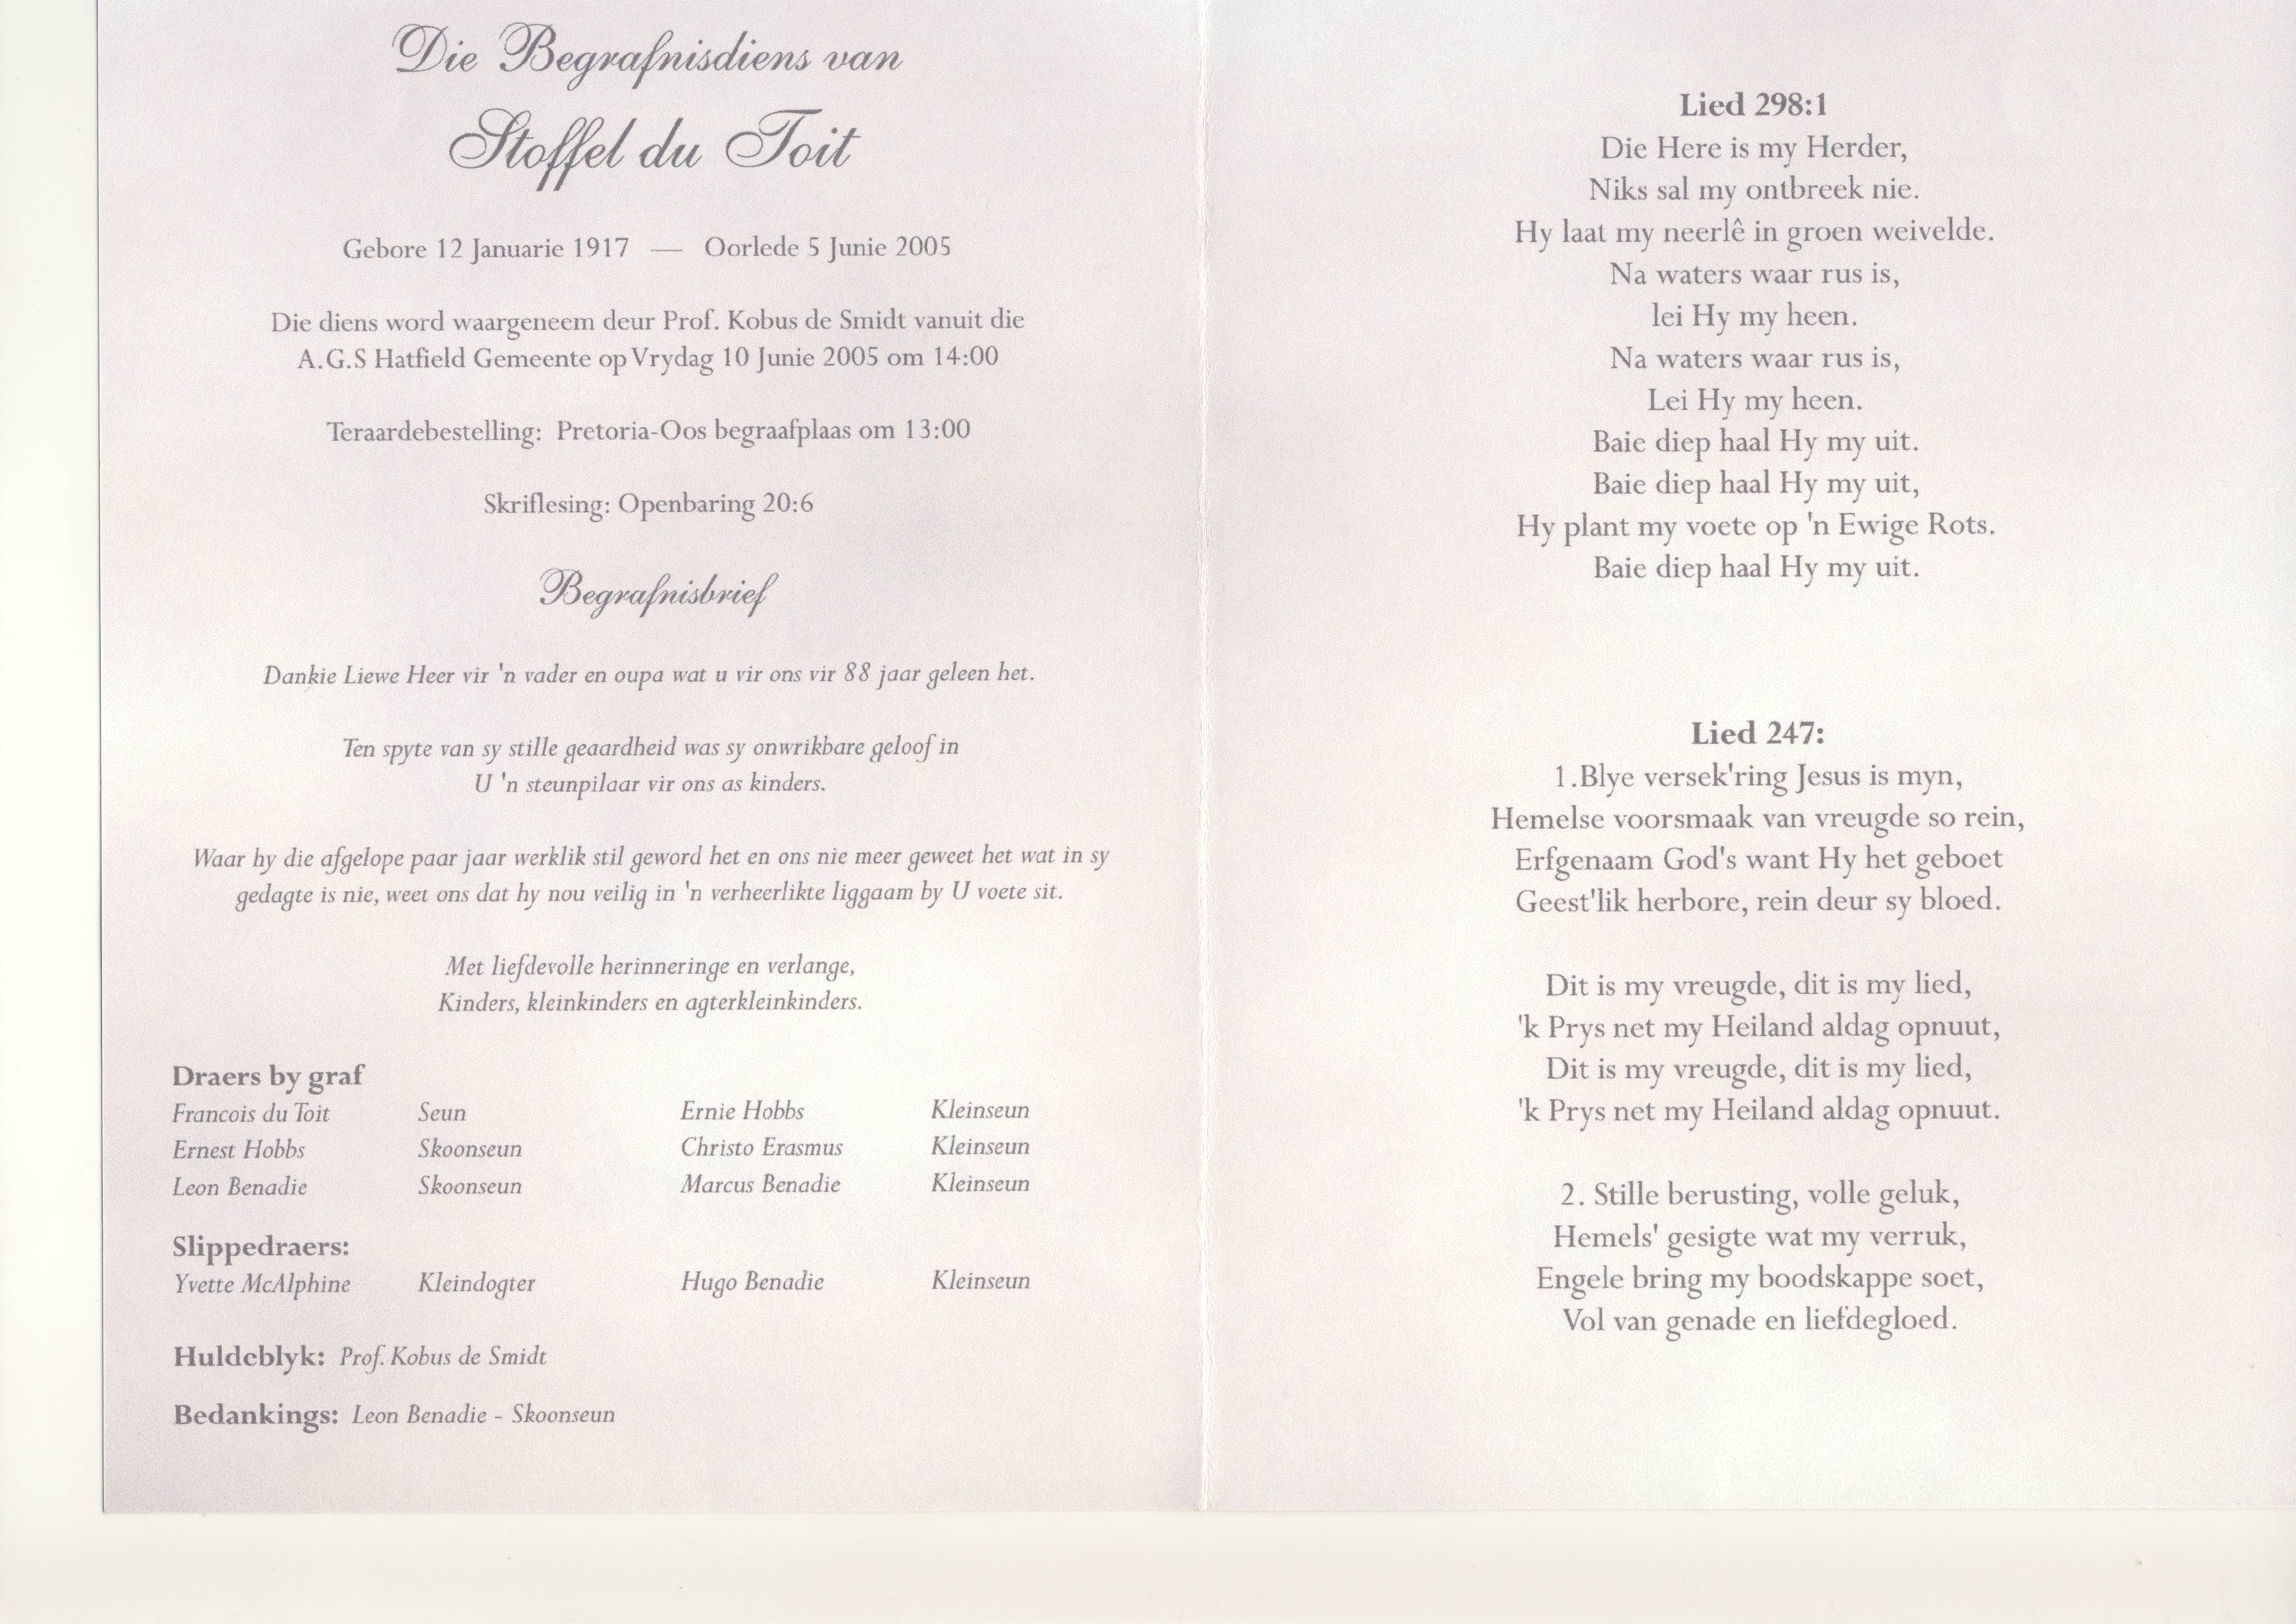 Die Begrafnisdiens van
Stoffel du Toit
Gebore 12 Januarie 1917 — Oorlede 5 Junie 2005
Die diens word waargeneem deur Prof. Kobus de Smidt vanuit die
A.G.S Hatfield Gemeente op Vrydag 10 Junie 2005 om 14:00
Teraardebestelling: Pretoria-Oos begraafplaas om 13:00
Skriflesing: Openbaring 20:6
Begrafnisbrief
Dankie Liewe Heer vir 'n vader en oupa wat u vir ons vir 88 jaar geleen het.
Ten spyte van sy stille geaardheid was sy onwrikbare geloof in
U 'n steunpilaar vir ons as kinders.
Waar hy die afgelope paar jaar werklik stil geword het en ons nie meer geweet het wat in sy
gedagte is nie, weet ons dat hy nou veilig in 'n verheerlikte liggaam by U voete sit.
Met liefdevolle herinneringe en verlange,
Kinders, kleinkinders en agterkleinkinders.
Draers by graf
Francois du Toit Seun Ernie Hobbs Kleinseun
Ernest Hobbs Skoonseun Christo Erasmus Kleinseun
Leon Benadie Skoonseun Marcus Benadie Kleinseun
Slippedraers:
Yvette McAlphine Kleindogter Hugo Benadie Kleinseun
Huldeblyk: Prof. Kobus de Smidt
Bedankings: Leon Benadie - Skoonseun
Lied 298:1
Die Here is my Herder,
Niks sal my ontbreek nie.
Hy laat my neerlê in groen weivelde.
Na waters waar rus is,
lei Hy my heen.
Na waters waar rus is,
Lei Hy my heen.
Baie diep haal Hy my uit.
Baie diep haal Hy my uit,
Hy plant my voete op 'n Ewige Rots.
Baie diep haal Hy my uit.
Lied 247:
1.Blye versek'ring Jesus is myn,
Hemelse voorsmaak van vreugde so rein,
Erfgenaam God's want Hy het geboet
Geest'lik herbore, rein deur sy bloed.
Dit is my vreugde, dit is my lied,
'k Prys net my Heiland aldag opnuut,
Dit is my vreugde, dit is my lied,
'k Prys net my Heiland aldag opnuut.
2. Stille berusting, volle geluk,
Hemels' gesigte wat my verruk,
Engele bring my boodskappe soet,
Vol van genade en liefdegloed.